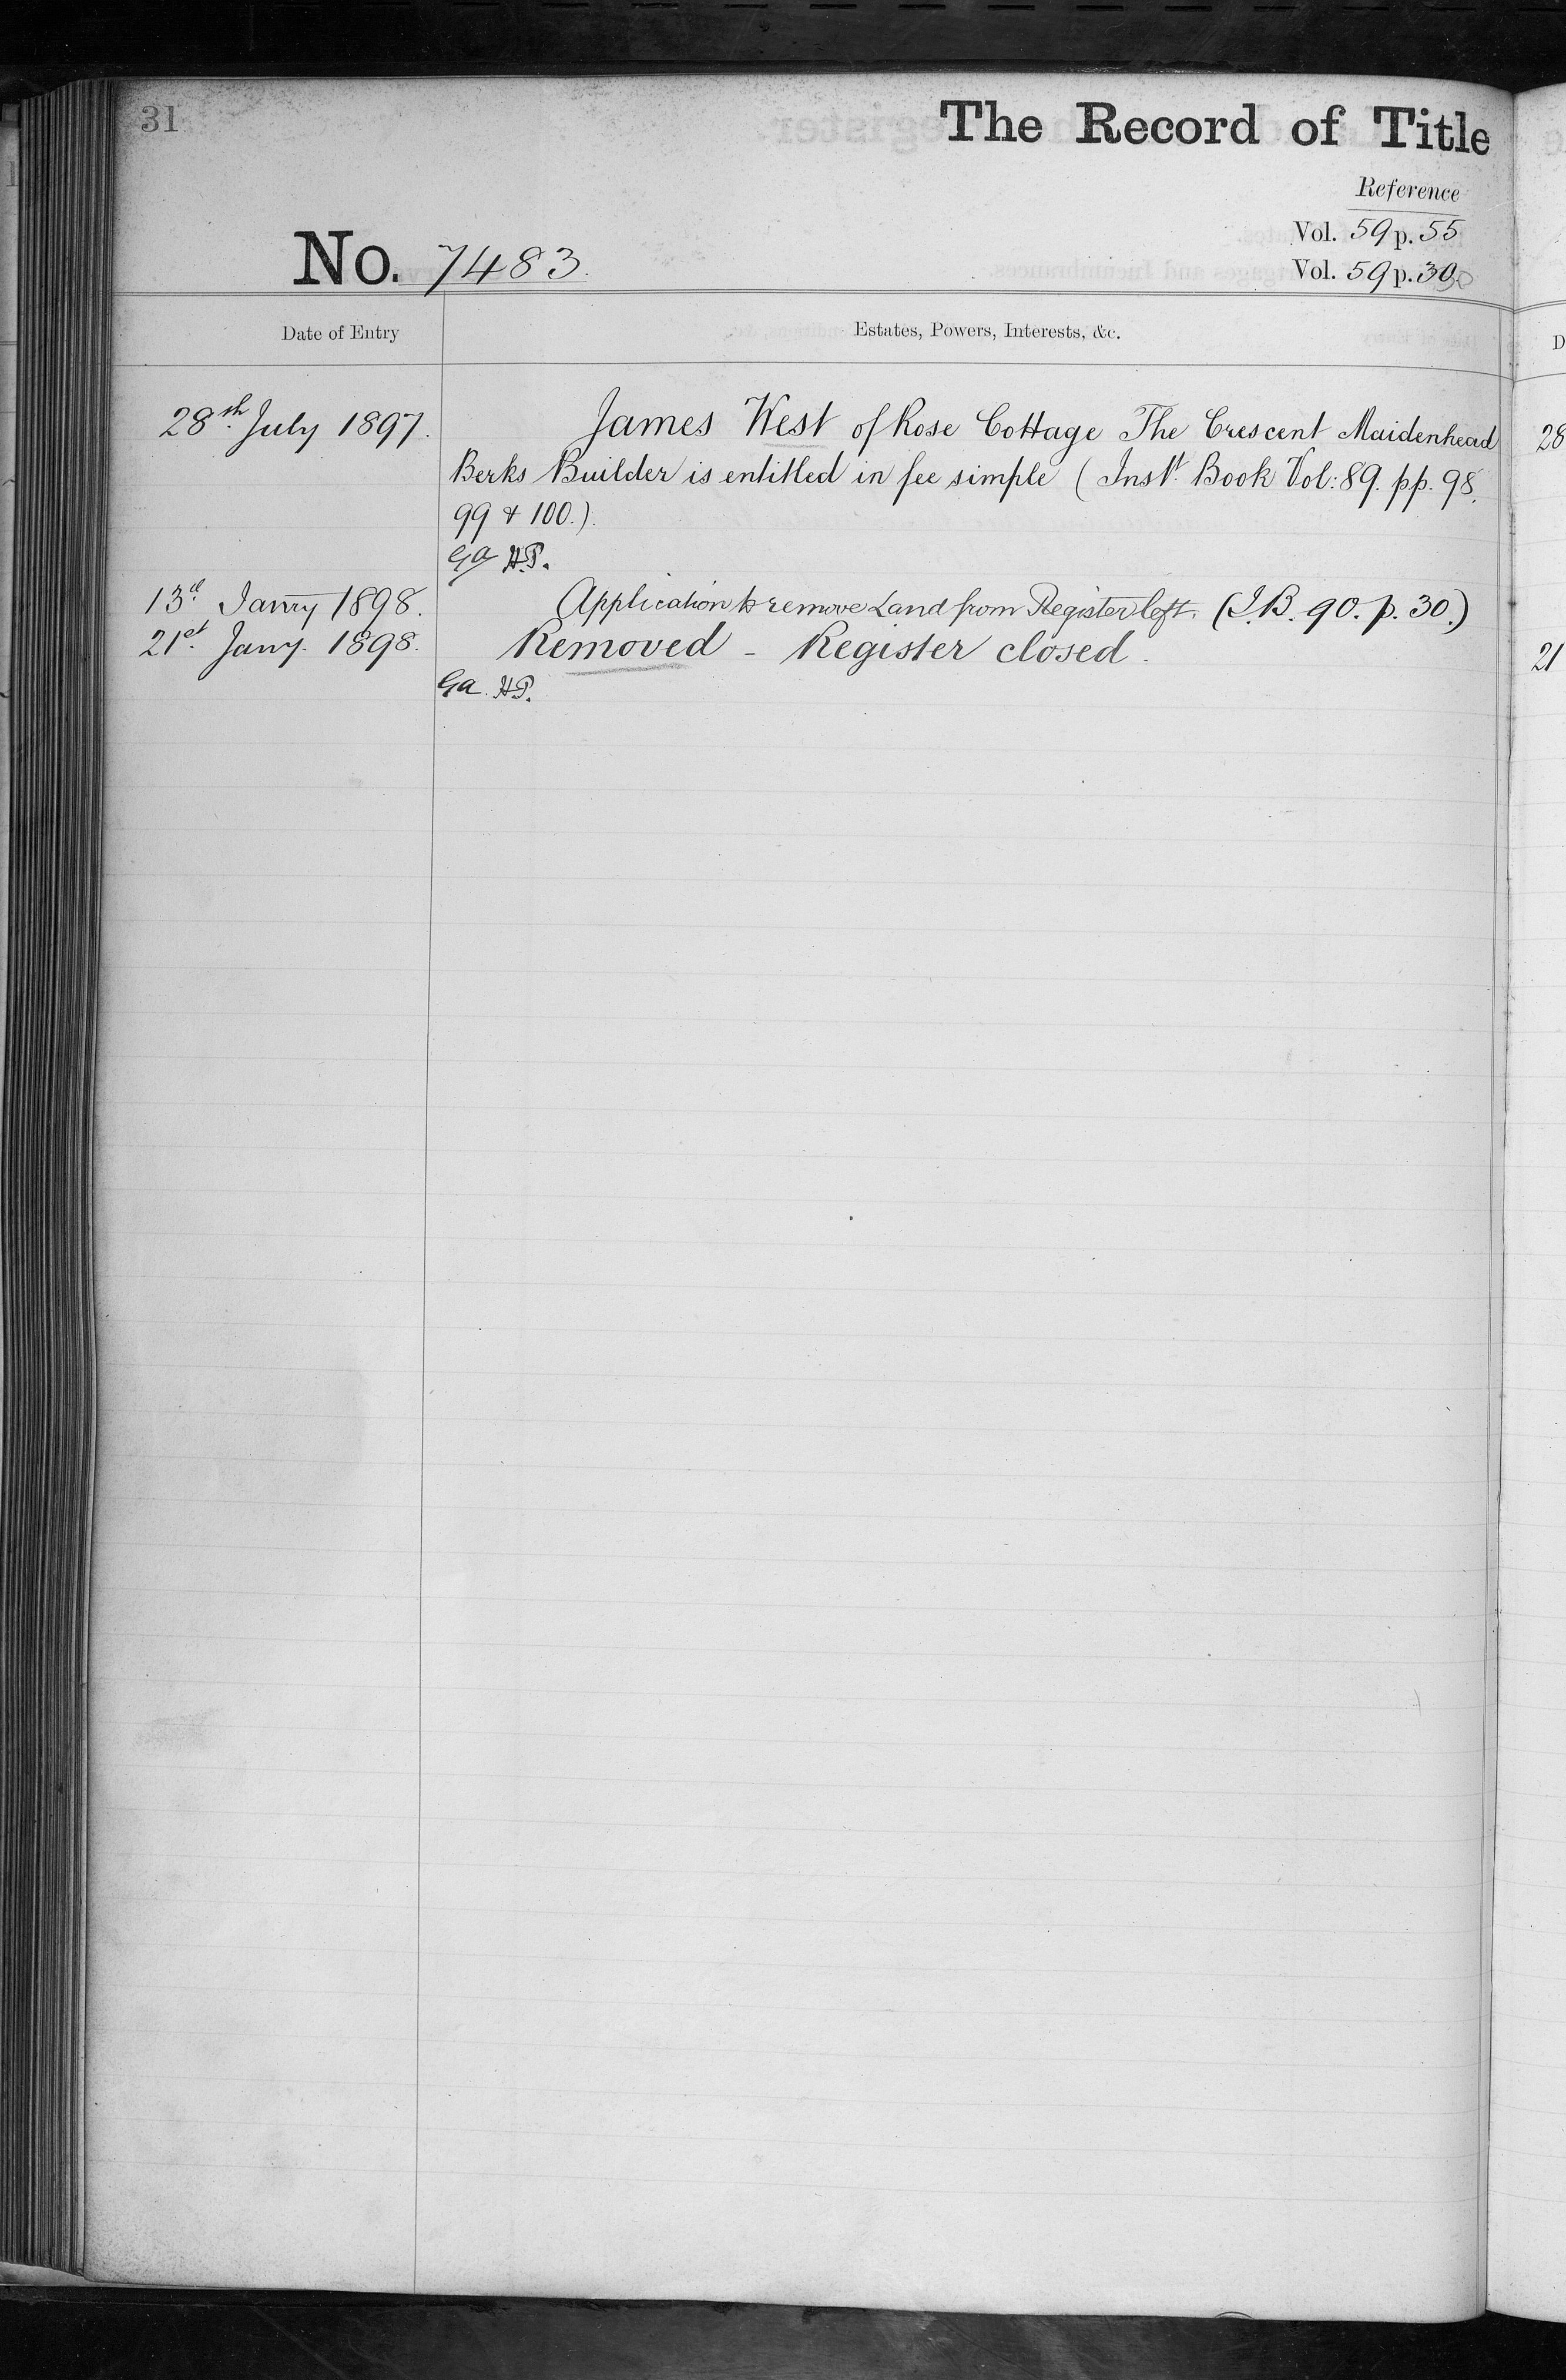 31
The Record of Title
Reference
Vol. 59 p. 55
No. 7483.
Vol. 59 p. 30
Date of Entry
Estates, Powers, Interests, &c.
28th July 1897.
James West of Rose Cottage The Crescent Maidenhead
Berks Builder is entitled in fee simple (Inst. Book Vol: 89. pp. 98,
99 & 100.).
Ga H.P.
13th Janry 1898.
Application to remove Land from Register left. (I.B. 90. p. 30.)
21st Jany. 1898.
Removed - Register closed.
Ga. H.P.
28
21